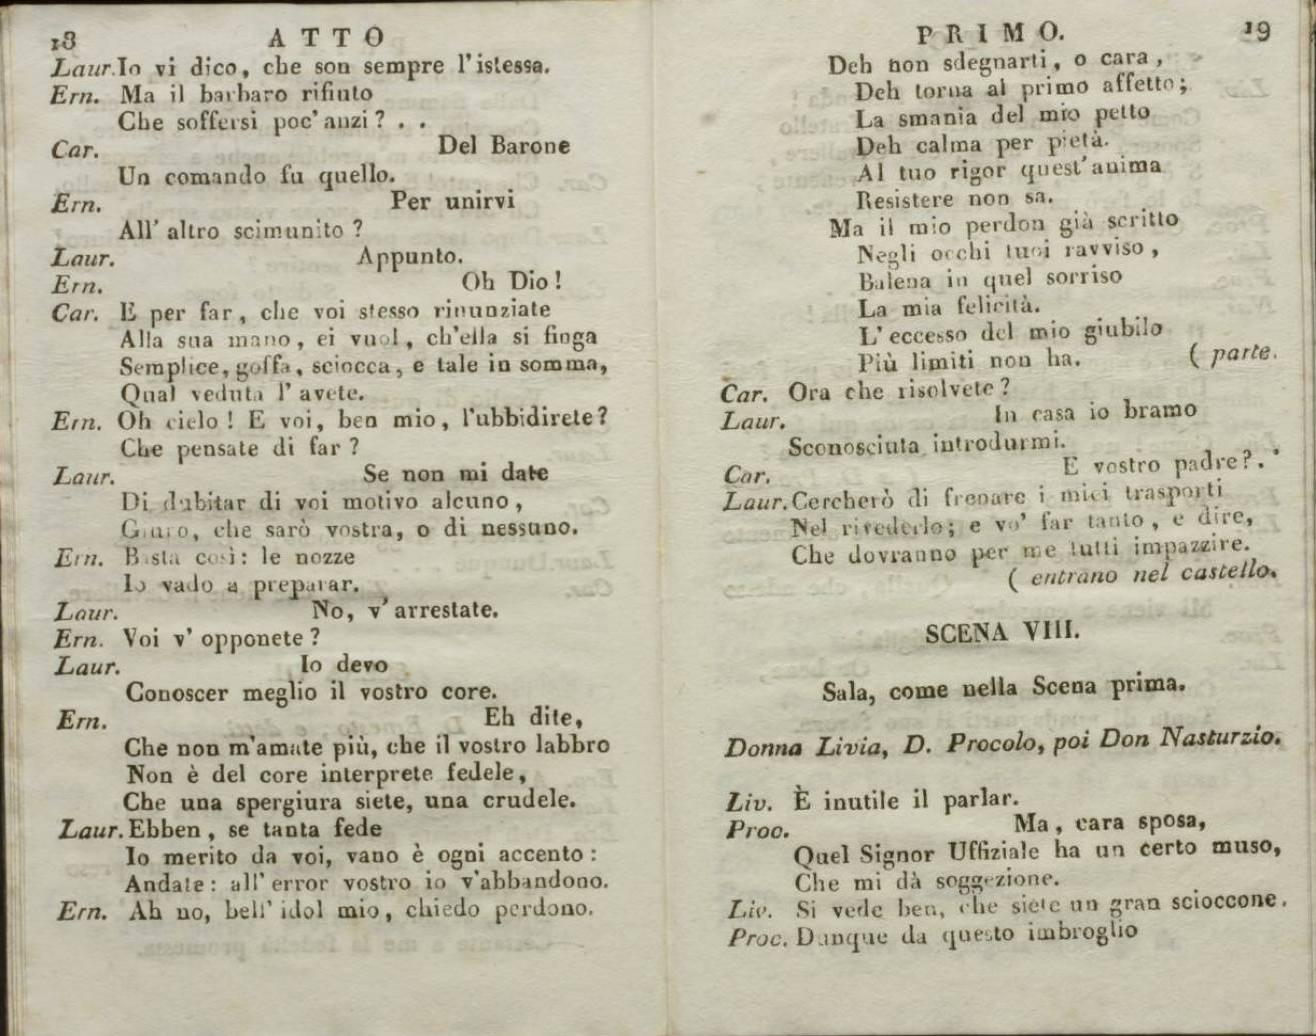 18 ATTO
Laur. Io vi dico, che son sempre l'istessa.
Ern. Ma il barbaro rifiuto
Che soffersi poc'anzi? . .
Car. Del Barone
Un comando fu quello.
Ern. Per unirvi
All' altro scimunito ?
Laur. Appunto.
Ern. Oh Dio!
Car. E per far, che voi stesso rinunziate
Alla sua mano, ei vuol, ch'ella si finga
Semplice, goffa, sciocca, e tale in somma,
Qual veduta l' avete.
Ern. Oh cielo! E voi, ben mio, l'ubbidirete?
Che pensate di far ?
Laur. Se non mi date
Di dubitar di voi motivo alcuno,
Giuro, che sarò vostra, o di nessuno.
Ern. Basta così: le nozze
Io vado a preparar.
Laur. No, v' arrestate.
Ern. Voi v' opponete ?
Laur. Io devo
Conoscer meglio il vostro core.
Ern. Eh dite,
Che non m'amate più, che il vostro labbro
Non è del core interprete fedele,
Che una spergiura siete, una crudele.
Laur. Ebben, se tanta fede
Io merito da voi, vano è ogni accento:
Andate: all' error vostro io v'abbandono.
Ern. Ah no, bell' idol mio, chiedo perdono.
PRIMO. 19
Deh non sdegnarti, o cara,
Deh torna al primo affetto;
La smania del mio petto
Deh calma per pietà.
Al tuo rigor quest' anima
Resistere non sa.
Ma il mio perdon già scritto
Negli occhi tuoi ravviso,
Balena in quel sorriso
La mia felicità.
L' eccesso del mio giubilo
Più limiti non ha. ( parte.
Car. Ora che risolvete ?
Laur. In casa io bramo
Sconosciuta introdurmi.
Car. E vostro padre?. .
Laur. Cercherò di frenare i miei trasporti
Nel rivederlo; e vo' far tanto, e dire,
Che dovranno per me tutti impazzire.
( entrano nel castello.
SCENA VIII.
Sala, come nella Scena prima.
Donna Livia, D. Procolo, poi Don Nasturzio.
Liv. È inutile il parlar.
Proc. Ma, cara sposa,
Quel Signor Uffiziale ha un certo muso,
Che mi dà soggezione.
Liv. Si vede ben, che siete un gran scioccone.
Proc. Dunque da questo imbroglio